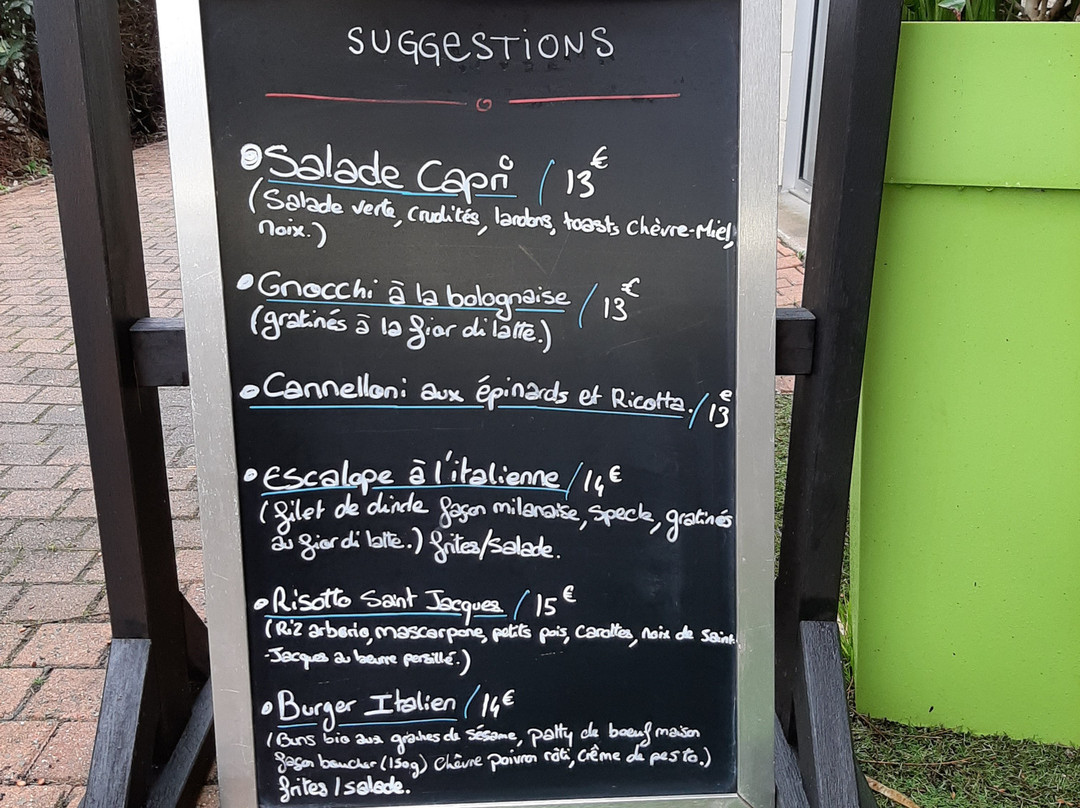 SUGGESTIONS
Salade Capri / 13€
(Salade verte, crudités, lardons, toasts Chèvre-Miel,
noix.)
Gnocchi à la bolognaise / 13€
(gratinés à la fior di latte.)
Cannelloni aux épinards et Ricotta. / 13€
Escalope à l'italienne / 14€
(filet de dinde façon milanaise, speck, gratinés
au fior di latte.) frites/salade.
Risotto Saint Jacques / 15€
(Riz arborio, mascarpone, petits pois, carottes, noix de Saint
-Jacques au beurre persillé.)
Burger Italien / 14€
(Buns bio aux graines de sésame, patty de boeuf maison
façon boucher (150g) Chèvre poivron rôti, crème de pesto.)
frites / salade.